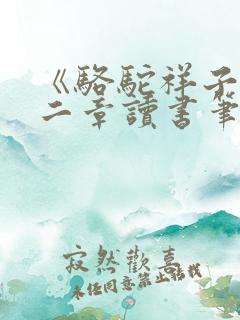 《駱駝祥子
二章讀書筆
寂然歡喜
未经同意禁止搭载